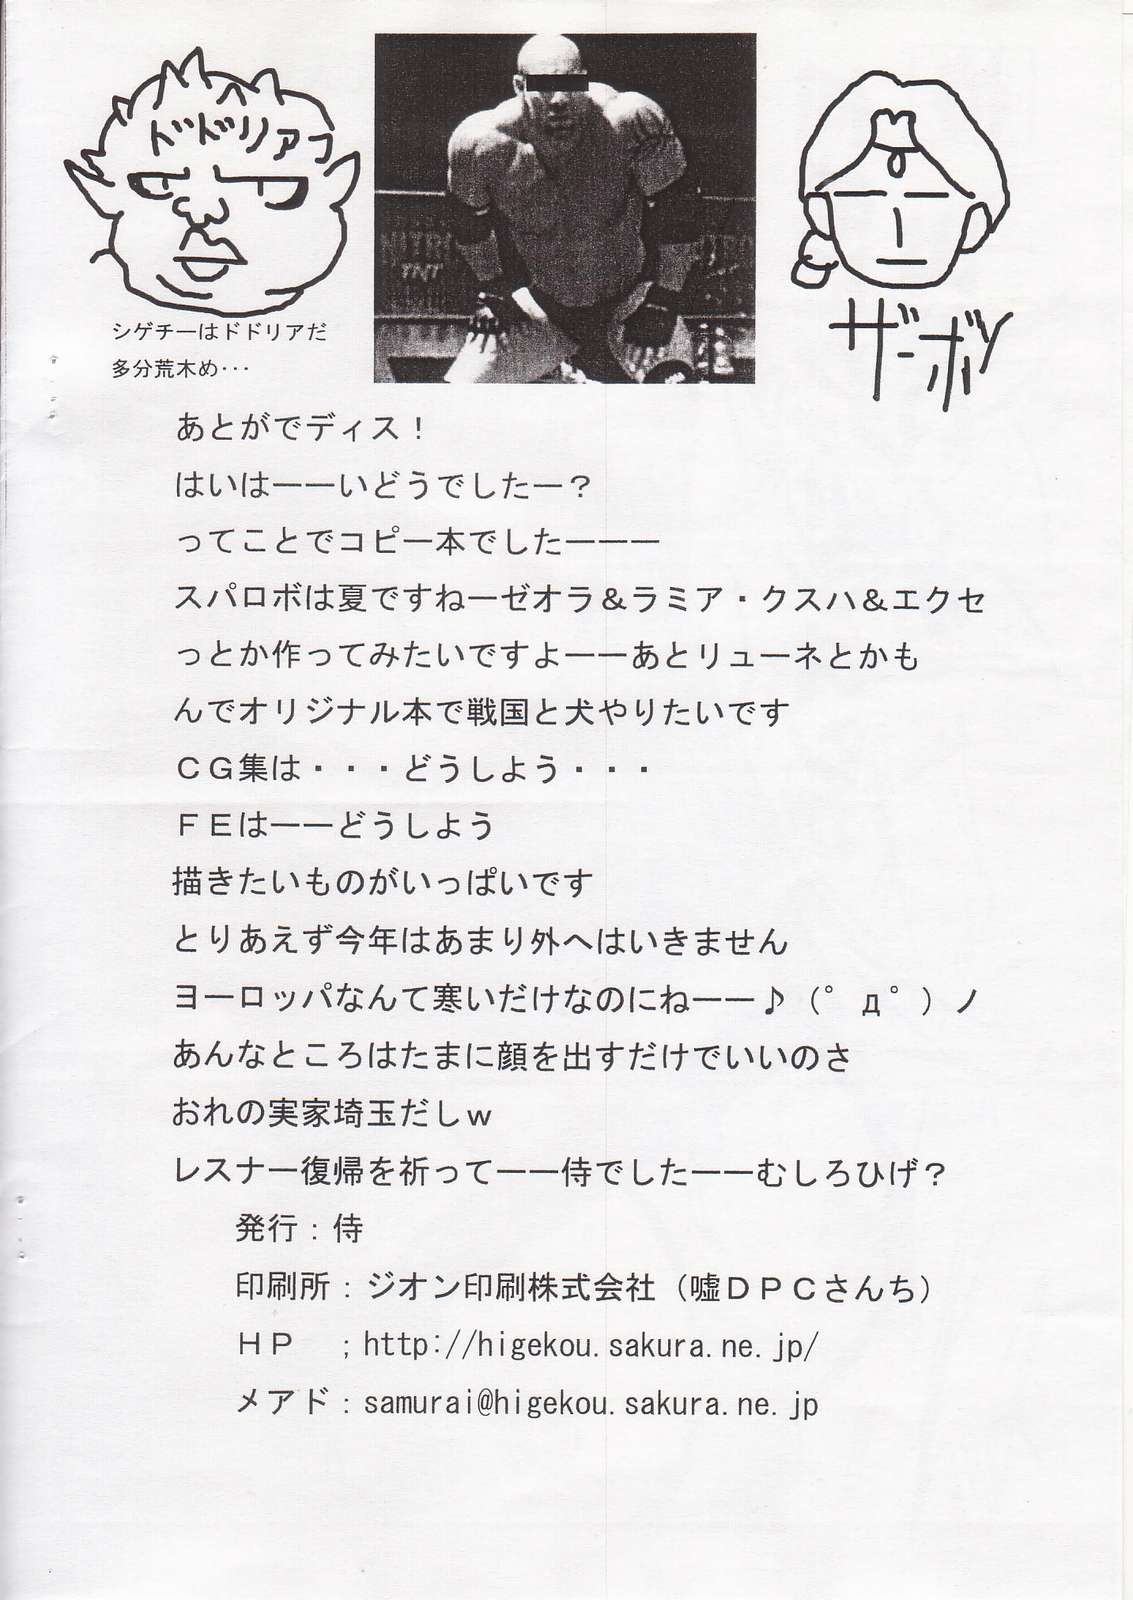 ドドリアっ
NITRO
TNT
NITRO
TNT
ザーボン
シゲチーはドドリアだ
多分荒木め･･･
あとがでディス！
はいはーーいどうでしたー？
ってことでコピー本でしたーーー
スパロボは夏ですねーゼオラ＆ラミア・クスハ＆エクセ
っとか作ってみたいですよーーあとリューネとかも
んでオリジナル本で戦国と犬やりたいです
ＣＧ集は・・・どうしよう・・・
ＦＥはーーどうしよう
描きたいものがいっぱいです
とりあえず今年はあまり外へはいきません
ヨーロッパなんて寒いだけなのにねーー♪（ﾟдﾟ）ノ
あんなところはたまに顔を出すだけでいいのさ
おれの実家埼玉だしｗ
レスナー復帰を祈ってーー侍でしたーーむしろひげ？
発行：侍
印刷所：ジオン印刷株式会社（嘘ＤＰＣさんち）
ＨＰ　；http://higekou.sakura.ne.jp/
メアド：samurai@higekou.sakura.ne.jp